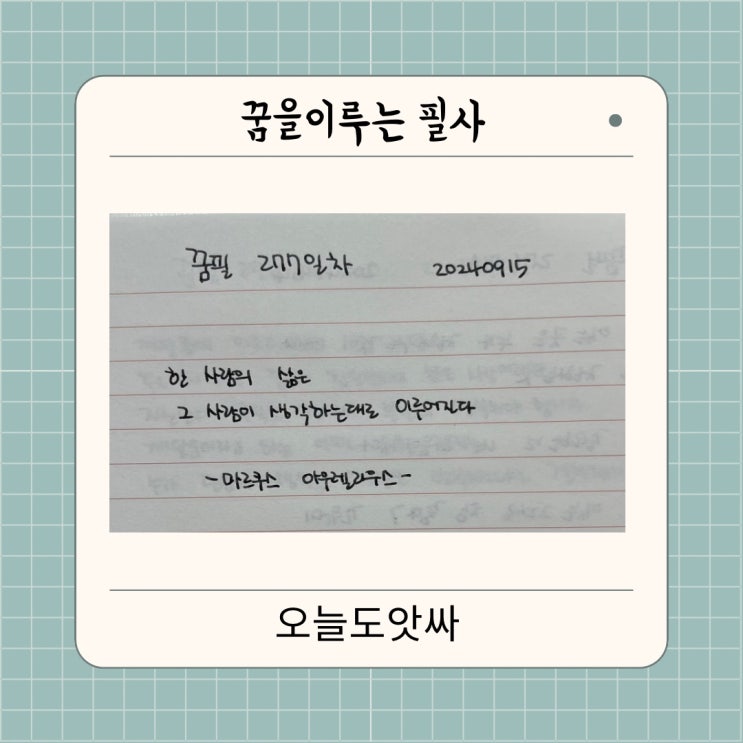 꿈을이루는 필사
꿈필 277일차 20240915
한 사람의 삶은
그 사람이 생각하는대로 이루어진다
-마르쿠스 아우렐리우스-
오늘도앗싸